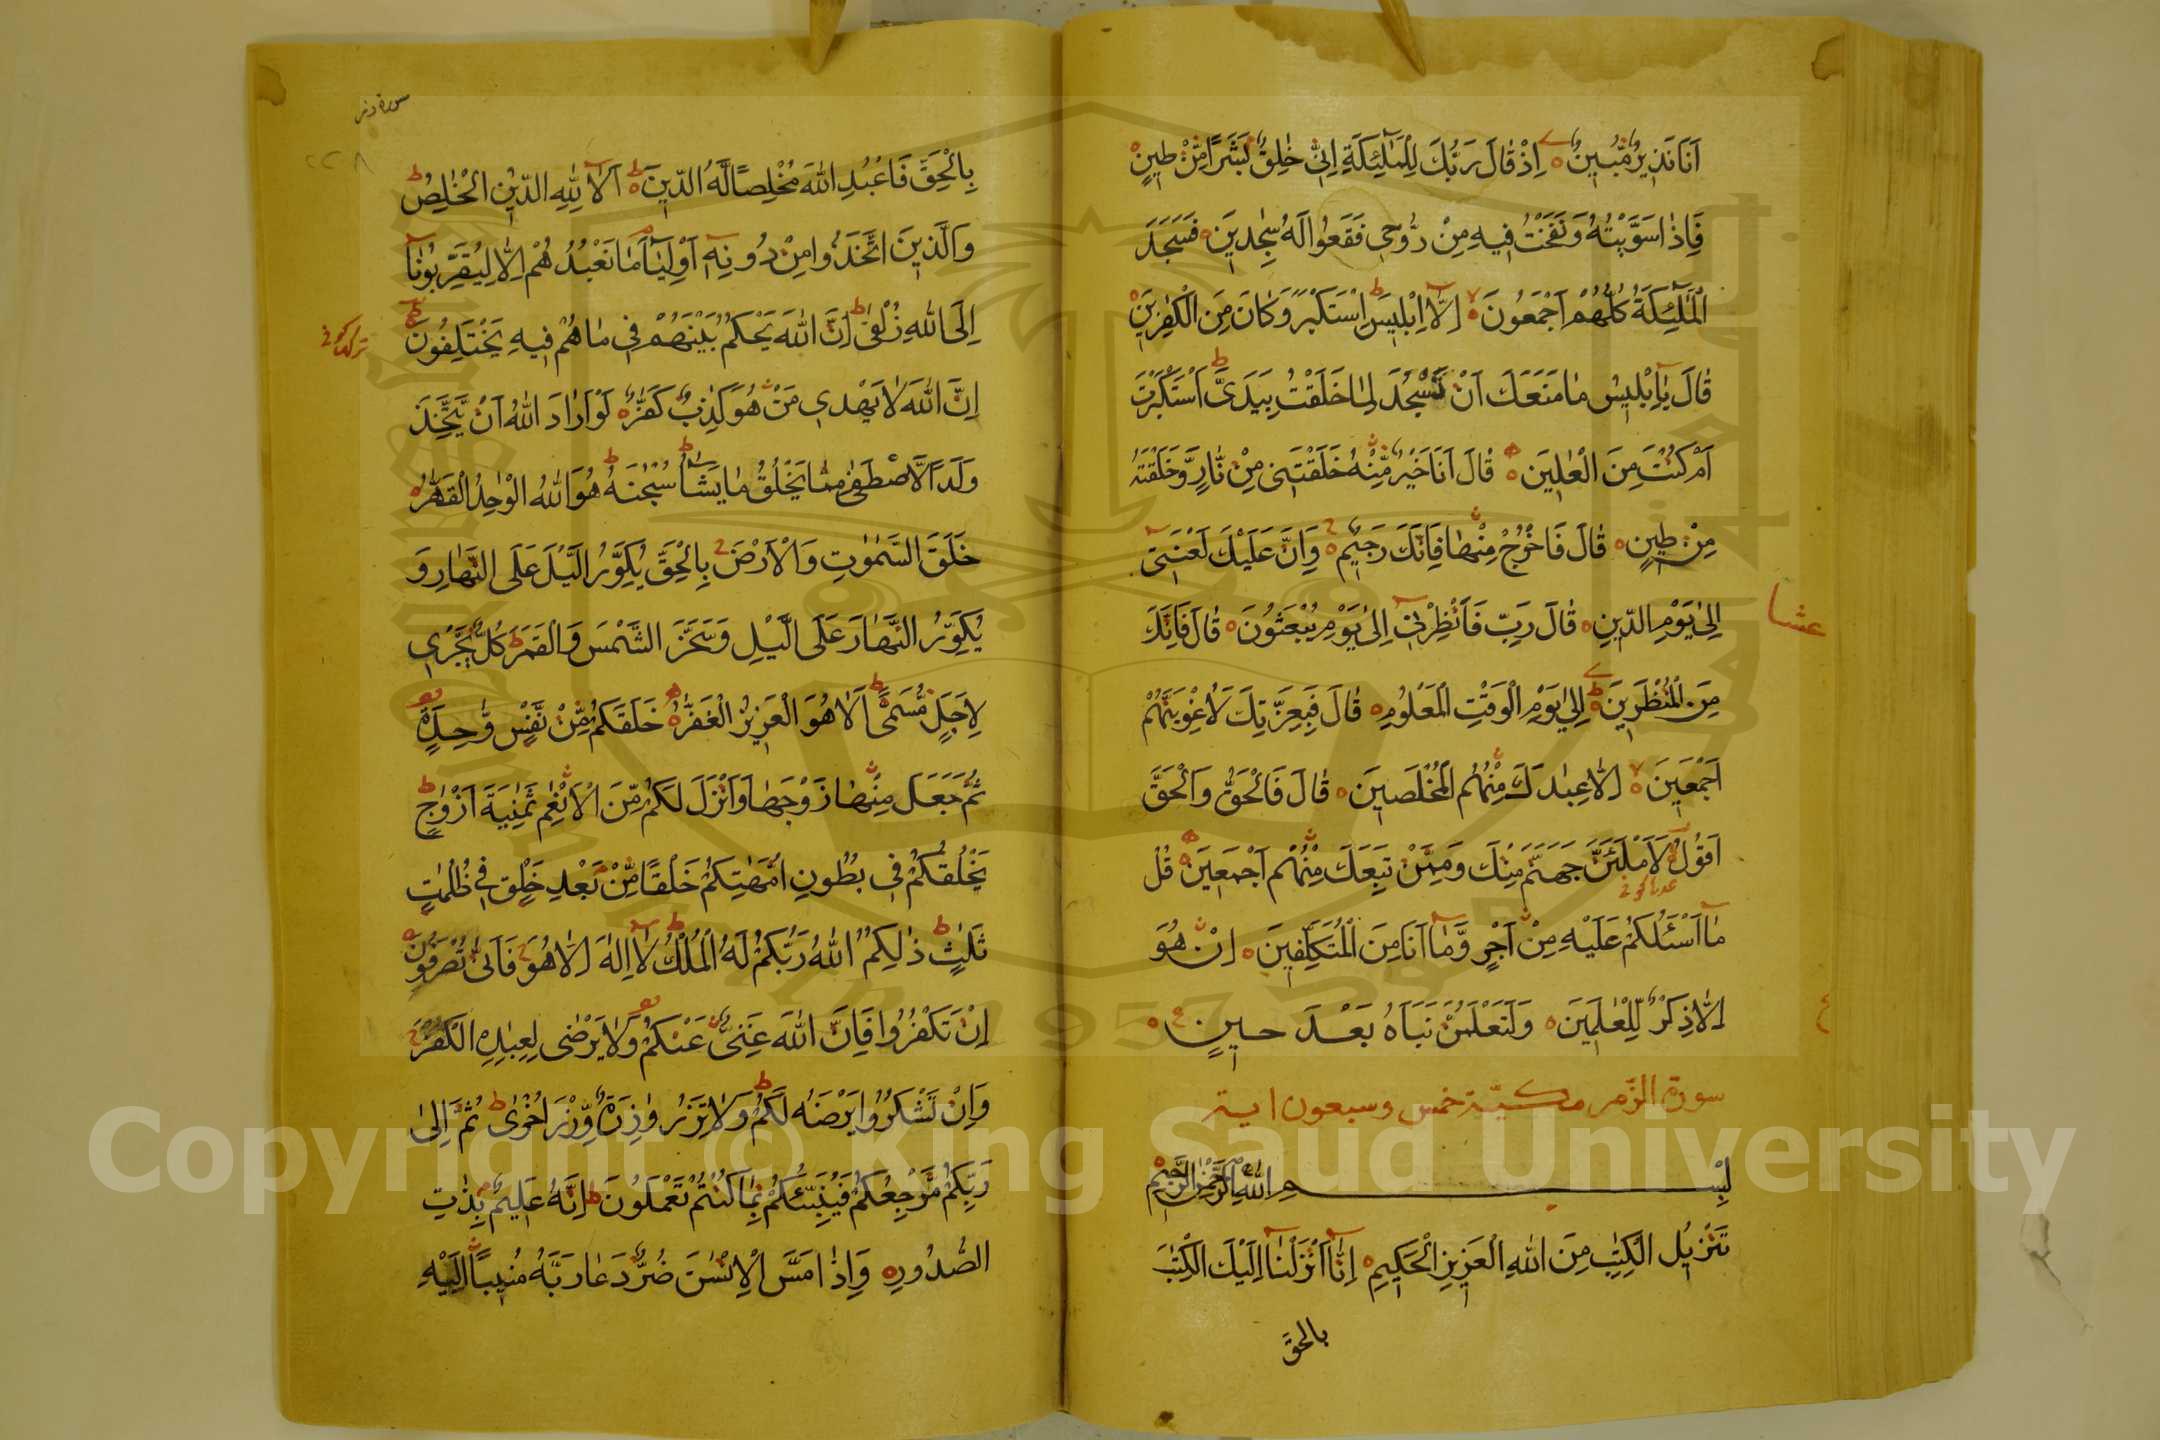 اَنَا نَذِيرٌ مُّبِينٌ اِذْ قَالَ رَبُّكَ لِلْمَلٰٓئِكَةِ اِنِّي خٰلِقٌ بَشَرًا مِّنْ طِينٍ
فَاِذٰا سَوَّيْتُهُ وَنَفَخْتُ فِيهِ مِنْ رُّوحِي فَقَعُوا لَهُ سٰجِدِينَ فَسَجَدَ
الْمَلٰٓئِكَةُ كُلُّهُمْ اَجْمَعُونَ اِلَّآ اِبْلِيسَ اِسْتَكْبَرَ وَكَانَ مِنَ الْكٰفِرِينَ
قٰالَ يٰٓاِبْلِيسُ مٰا مَنَعَكَ اَنْ تَسْجُدَ لِمٰا خَلَقْتُ بِيَدَيَّ اَسْتَكْبَرْتَ
اَمْ كُنْتَ مِنَ الْعٰالِينَ قٰالَ اَنَا خَيْرٌ مِّنْهُ خَلَقْتَنِي مِنْ نّٰارٍ وَّخَلَقْتَهُ
مِنْ طِينٍ قٰالَ فَاخْرُجْ مِنْهٰا فَاِنَّكَ رَجِيمٌ وَاِنَّ عَلَيْكَ لَعْنَتِيٓ
اِلٰى يَوْمِ الدِّينِ قٰالَ رَبِّ فَاَنْظِرْنِيٓ اِلٰى يَوْمِ يُبْعَثُونَ قٰالَ فَاِنَّكَ
عشا
مِنَ الْمُنْظَرِينَ اِلٰى يَوْمِ الْوَقْتِ الْمَعْلُومِ قٰالَ فَبِعِزَّتِكَ لَاُغْوِيَنَّهُمْ
اَجْمَعِينَ اِلّٰا عِبٰادَكَ مِنْهُمُ الْمُخْلَصِينَ قٰالَ فَالْحَقُّ وَالْحَقَّ
اَقُولُ لَاَمْلَئَنَّ جَهَنَّمَ مِنْكَ وَمِمَّنْ تَبِعَكَ مِنْهُمْ اَجْمَعِينَ قُلْ
مٰٓا اَسْئَلُكُمْ عَلَيْهِ مِنْ اَجْرٍ وَّمٰٓا اَنَا مِنَ الْمُتَكَلِّفِينَ اِنْ هُوَ
اِلّٰا ذِكْرٌ لِّلْعٰلَمِينَ وَلَتَعْلَمُنَّ نَبَاَهُ بَعْدَ حِينٍ
ع
سورة الزمر مكية خمس وسبعون اية
بِسْمِ اللّٰهِ الرَّحْمٰنِ الرَّحِيمِ
تَنْزِيلُ الْكِتٰبِ مِنَ اللّٰهِ الْعَزِيزِ الْحَكِيمِ اِنّٰٓا اَنْزَلْنٰٓا اِلَيْكَ الْكِتٰبَ
بالحق
٢٢٨
بِالْحَقِّ فَاعْبُدِ اللّٰهَ مُخْلِصًا لَّهُ الدِّينَ اَلَا لِلّٰهِ الدِّينُ الْخٰلِصُ
وَالَّذِينَ اتَّخَذُوا مِنْ دُونِهِٓ اَوْلِيَآءَ مٰا نَعْبُدُهُمْ اِلّٰا لِيُقَرِّبُونٰٓا
اِلَى اللّٰهِ زُلْفٰى اِنَّ اللّٰهَ يَحْكُمُ بَيْنَهُمْ فِي مٰا هُمْ فِيهِ يَخْتَلِفُونَ
اِنَّ اللّٰهَ لٰا يَهْدِي مَنْ هُوَ كٰذِبٌ كَفّٰارٌ لَوْ اَرٰادَ اللّٰهُ اَنْ يَّتَّخِذَ
وَلَدًا لَّاصْطَفٰى مِمّٰا يَخْلُقُ مٰا يَشَآءُ سُبْحٰنَهُ هُوَ اللّٰهُ الْوٰاحِدُ الْقَهّٰارُ
خَلَقَ السَّمٰوٰتِ وَالْاَرْضَ بِالْحَقِّ يُكَوِّرُ الَّيْلَ عَلَى النَّهٰارِ وَ
يُكَوِّرُ النَّهٰارَ عَلَى الَّيْلِ وَسَخَّرَ الشَّمْسَ وَالْقَمَرَ كُلٌّ يَّجْرِي
لِاَجَلٍ مُّسَمًّى اَلٰا هُوَ الْعَزِيزُ الْغَفّٰارُ خَلَقَكُمْ مِّنْ نَّفْسٍ وّٰحِدَةٍ
ثُمَّ جَعَلَ مِنْهٰا زَوْجَهٰا وَاَنْزَلَ لَكُمْ مِّنَ الْاَنْعٰمِ ثَمٰنِيَةَ اَزْوٰجٍ
يَخْلُقُكُمْ فِي بُطُونِ اُمَّهٰتِكُمْ خَلْقًا مِّنْ بَعْدِ خَلْقٍ فِي ظُلُمٰتٍ
ثَلٰثٍ ذٰلِكُمُ اللّٰهُ رَبُّكُمْ لَهُ الْمُلْكُ لٰٓا اِلٰهَ اِلّٰا هُوَ فَاَنّٰى تُصْرَفُونَ
اِنْ تَكْفُرُوا فَاِنَّ اللّٰهَ غَنِيٌّ عَنْكُمْ وَلٰا يَرْضٰى لِعِبٰادِهِ الْكُفْرَ
وَاِنْ تَشْكُرُوا يَرْضَهُ لَكُمْ وَلٰا تَزِرُ وٰازِرَةٌ وِّزْرَ اُخْرٰى ثُمَّ اِلٰى
رَبِّكُمْ مَّرْجِعُكُمْ فَيُنَبِّئُكُمْ بِمٰا كُنْتُمْ تَعْمَلُونَ اِنَّهُ عَلِيمٌ بِذٰتِ
الصُّدُورِ وَاِذٰا مَسَّ الْاِنْسٰنَ ضُرٌّ دَعٰا رَبَّهُ مُنِيبًا اِلَيْهِ
Copyright © King Saud University
1957